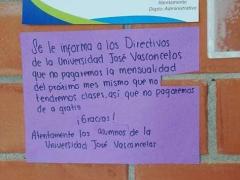 Atentamente
Depto. Administrativo
Se le informa a los Directivos
de la Universidad José Vasconcelos
que no pagaremos la mensualidad
del próximo mes mismo que no
tendremos clases, así que no pagaremos
de a gratis
¡Gracias!
Atentamente los alumnos de la
Universidad José Vasconcelos